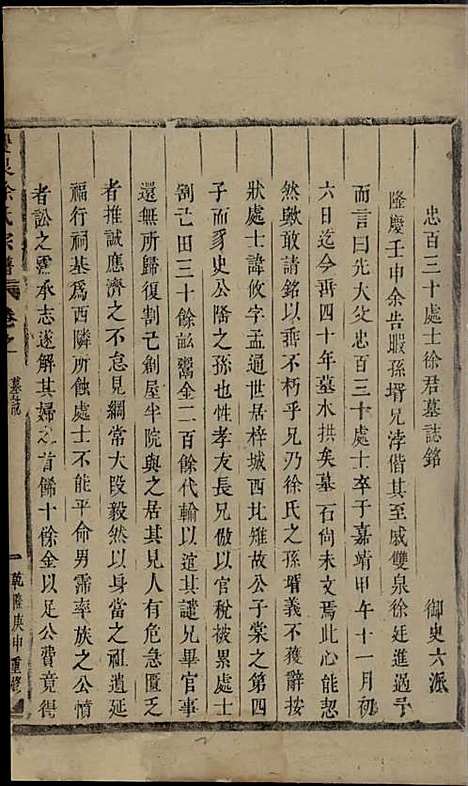 忠百三十處士徐君墓誌銘
御史六派
隆慶壬申余告暇孫壻兄浡偕其至戚雙泉徐廷進過予
而言曰先大父忠百三十處士卒于嘉靖甲午十一月初
六日迄今冊四十年墓木拱矣墓石尚未文焉此心能恝
然歟敢請銘以垂不朽乎兄乃徐氏之孫壻義不獲辭按
狀處士諱攸字孟通世居梓城西北雉故公子棠之第四
子而豸史公隆之孫也性孝友長兄倣以官稅被累處士
割己田三十餘畆鬻金二百餘代輸以逭其譴兄畢官事
還無所歸復割己創屋半院與之居其兄人有危急匱乏
者推誠應濟之不怠見綱常大段毅然以身當之祖遺延
福行祠基爲西隣所蝕處士不能平命男霈率族之公憤
者訟之霈承志遂解其婦之首餙十餘金以足公費竟得
徐氏宗譜
卷之
墓誌
一
乾隆庚申重修